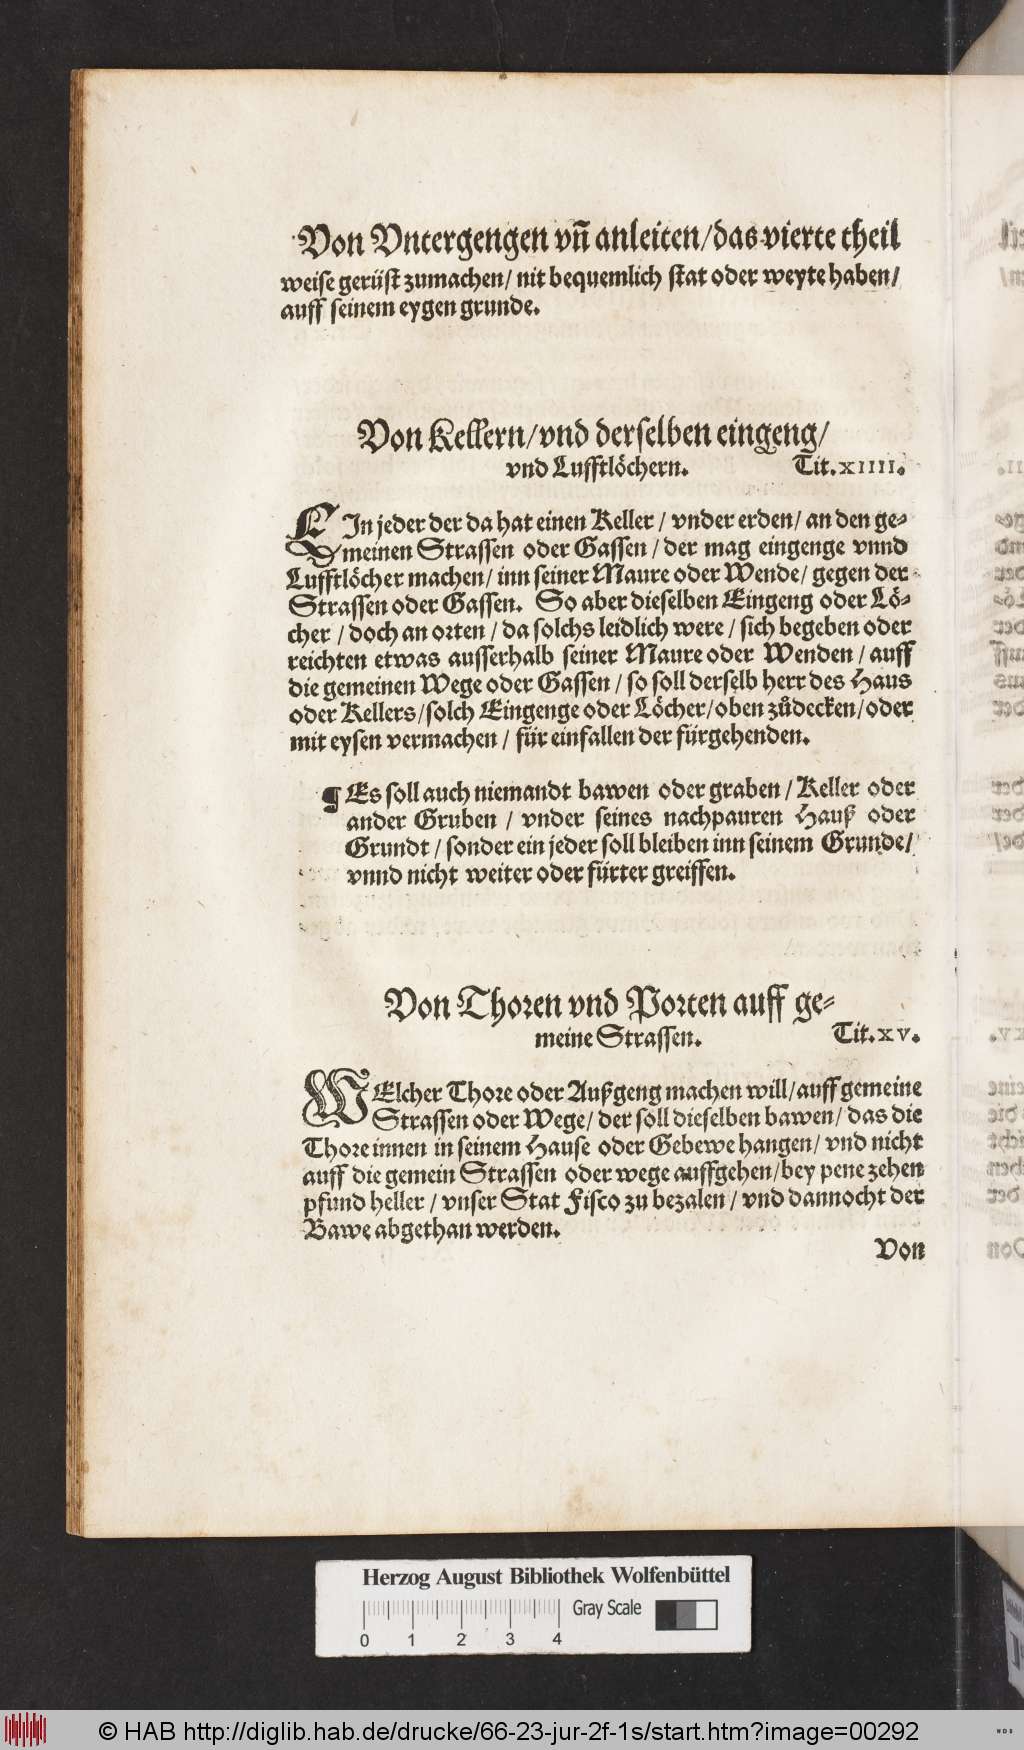 Von Vntergengen vñ anleiten/das vierte theil
weise gerüst zumachen/ nit bequemlich stat oder weyte haben/
auff seinem eygen grunde.
Von Kellern/vnd derselben eingeng/
vnd Lufftlöchern. Tit.XIIII.
EIn jeder der da hat einen Keller / vnder erden/ an den ge-
meinen Strassen oder Gassen / der mag eingenge vnnd
Lufftlöcher machen/ inn seiner Maure oder Wende/ gegen der
Strassen oder Gassen. So aber dieselben Eingeng oder Lö-
cher / doch an orten / da solchs leidlich were / sich begeben oder
reichten etwas ausserhalb seiner Maure oder Wenden / auff
die gemeinen Wege oder Gassen / so soll derselb herr des Haus
oder Kellers/solch Eingenge oder Löcher/oben zůdecken/oder
mit eysen vermachen / für einfallen der fürgehenden.
¶ Es soll auch niemandt bawen oder graben / Keller oder
ander Gruben / vnder seines nachpauren Hauß oder
Grundt / sonder ein jeder soll bleiben inn seinem Grunde/
vnnd nicht weiter oder fürter greiffen.
Von Thoren vnd Porten auff ge-
meine Strassen. Tit.XV.
WElcher Thore oder Außgeng machen will/auff gemeine
Strassen oder Wege/ der soll dieselben bawen/ das die
Thore innen in seinem Hause oder Gebewe hangen/ vnd nicht
auff die gemein Strassen oder wege auffgehen/bey pene zehen
pfund heller / vnser Stat Fisco zu bezalen / vnd dannocht der
Bawe abgethan werden.
Von
Herzog August Bibliothek Wolfenbüttel
Gray Scale
0 1 2 3 4
© HAB http://diglib.hab.de/drucke/66-23-jur-2f-1s/start.htm?image=00292